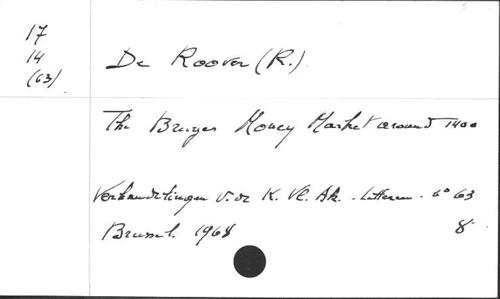 17
14
(63)
De Roover (R.)
The Bruges Money Market around 1400
Verhandelingen v. de K. Vl. Ak. Letteren. n° 63
Brussel. 1968
8°